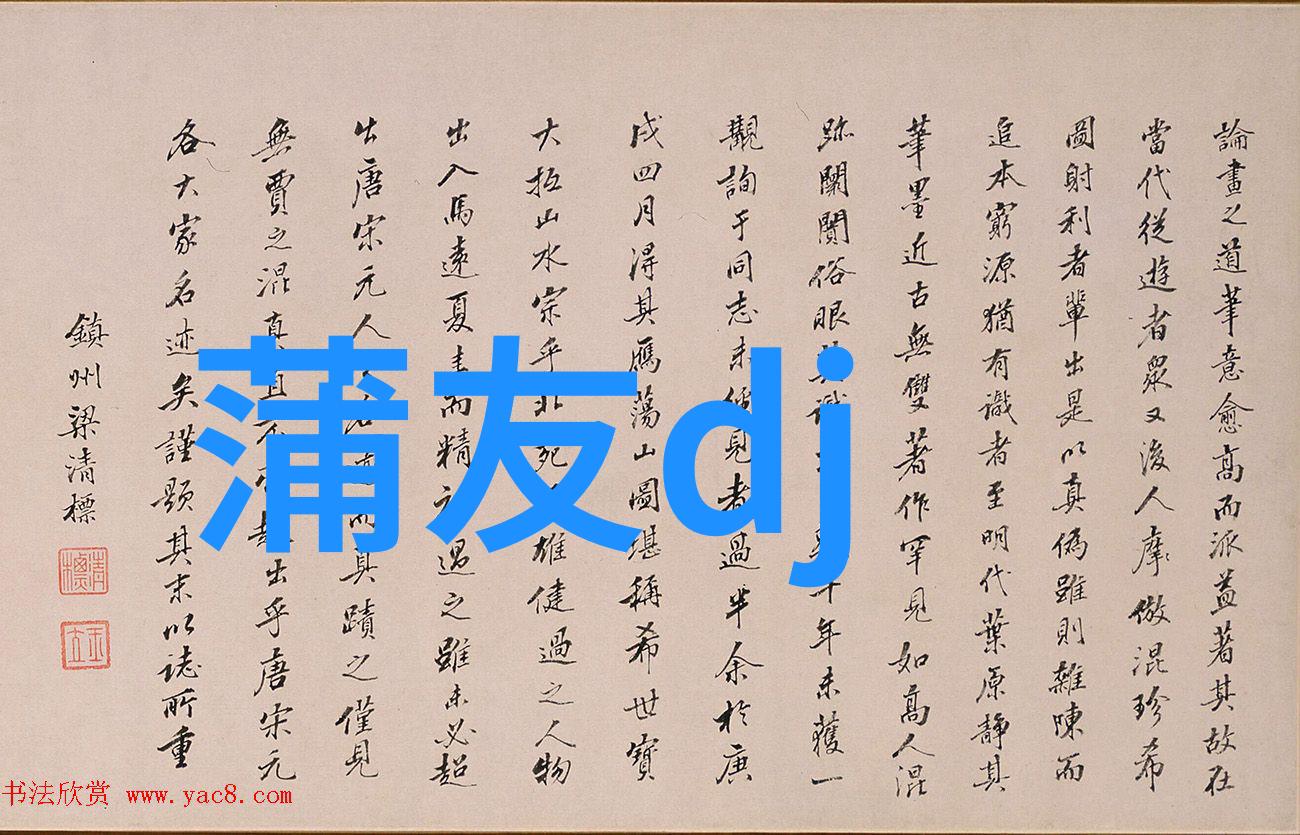 論畫之道筆意愈高而派益著其故在
當代從遊者眾又後人摩倣混珍希
圖射利者輩出是以真偽雖則雜陳而
追本窮源猶有識者至明代葉原靜其
筆墨近古無雙著作罕見如高人混
跡闤闠俗眼莫識 年未獲一
觀詢于同志未値見者過半余於庚
戌四月得其鴈蕩山圖堪稱希世寶
大抵山水宗乎北苑 雄健過之人物
出入馬遠夏圭而精 過之雖未必超
出唐宋元人 真蹟之僅見
無賈之混真且 出乎唐宋元
各大家名迹矣謹題其末以誌所重
鎮州梁清標
清標
蒲友dj
书法欣赏 www.yac8.com